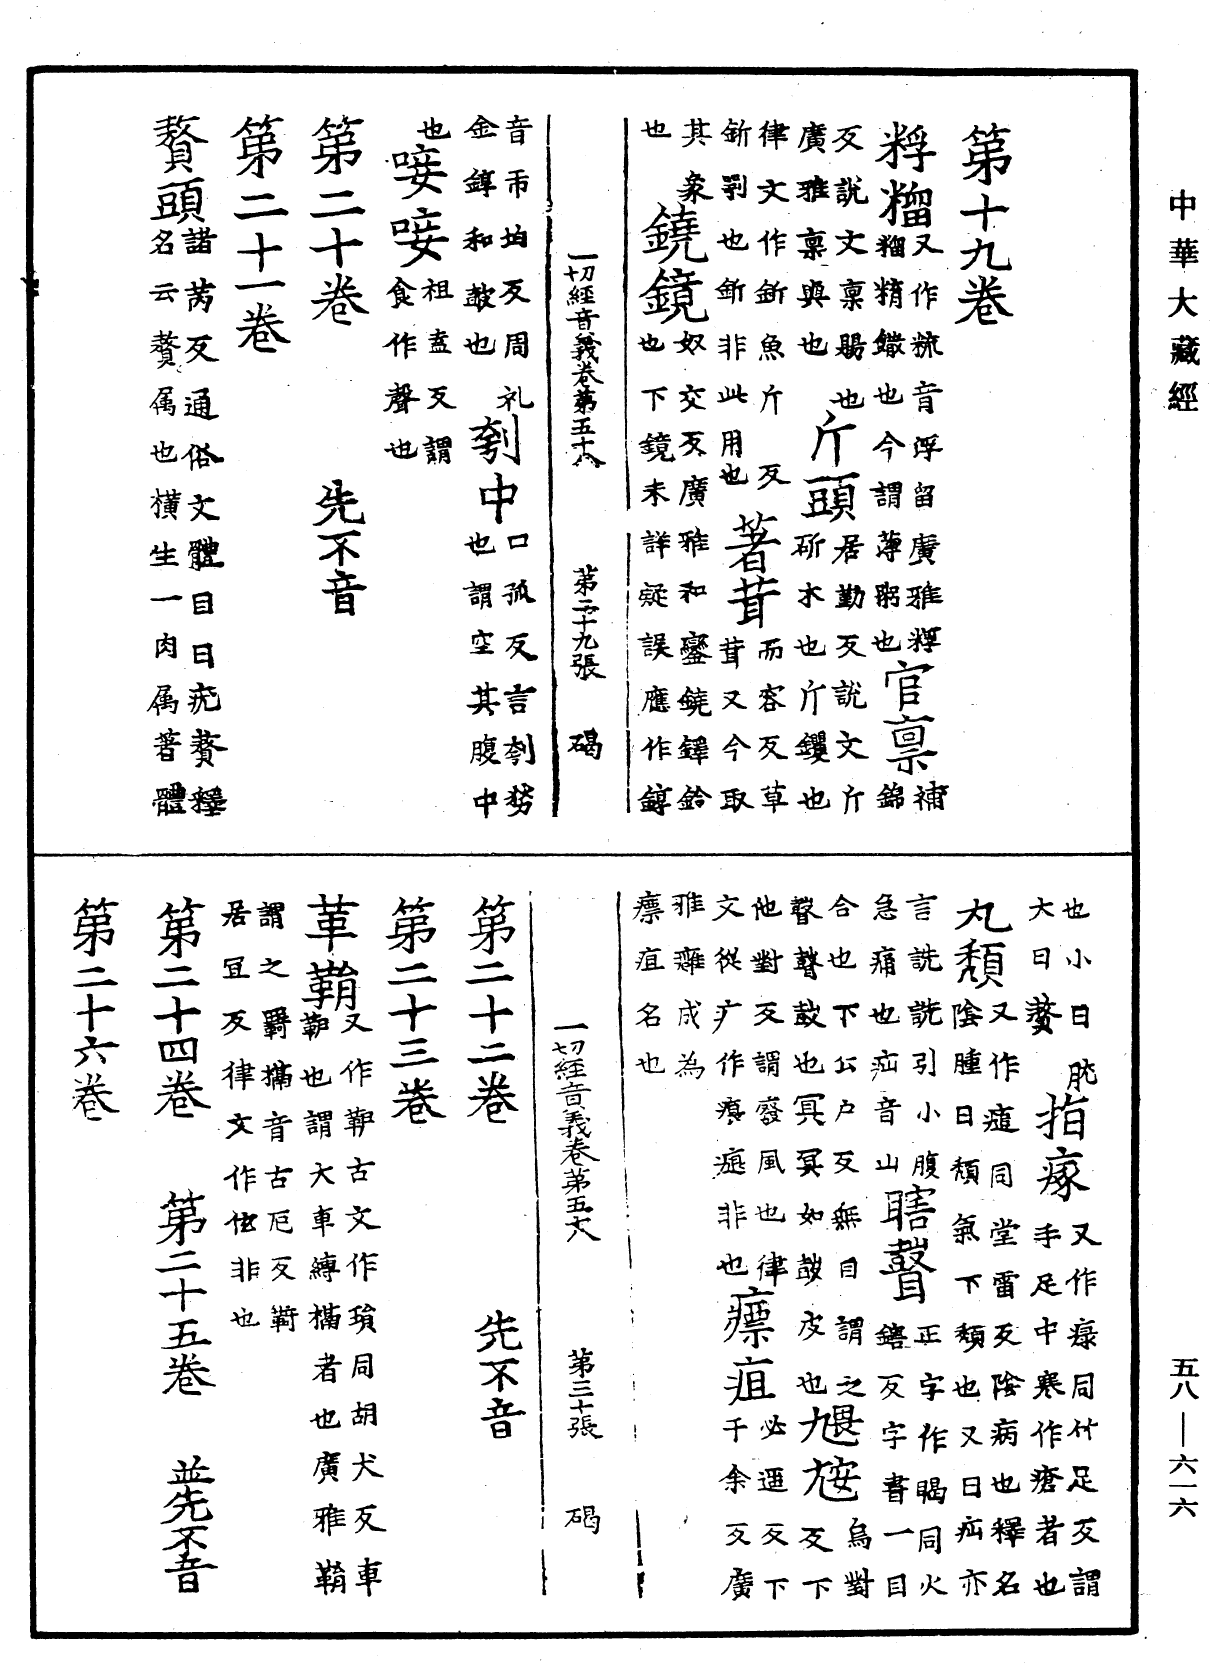 第十九卷
粰𥹷 又作梳音浮留廣雅粰 𥹷精也今謂薄粥也 官稟 補錦
反說文稟賜也 廣雅稟與也 斤頭 居勤反說文斤 斫木也斤钁也
律文作釿魚斤反 釿也釿非此用也 著茸 而容反草 茸又今取
其𧰼也 鐃鏡 奴交反廣雅和鑾鐃鐸鈴 也下鏡未詳疑誤應作錞
一切經音義卷第五十八 第二十九張 碣
音帀均反周礼 金錞和鼓也 刳中 口孤反言刳剺 也謂空其腹中
也 唼唼 祖盍反謂 食作聲也
第二十卷 先不音
第二十一卷
贅頭 諸芮反通俗文體目曰疣贅釋 名云贅属也橫生一肉属著體
也小曰肬 大曰贅 指瘃 又作同竹足反謂 手足中寒作瘡者也
丸頹 又作同堂雷反陰病也釋名 陰腫曰頹氣下頹也又曰疝亦
言詵詵引小腹 急痛也疝音山 瞎瞽 正字作暍同火 鎋反字書一目
合也下公戶反無目謂之 瞽瞽鼓也冥冥如鼓皮也 烏對反下
他對反謂癈風也律 文從疒作非也 瘭疽 必遥反下 千余反廣
雅癰成為 瘭疽名也
一切經音義卷第五十八 第三十張 碣
第二十二卷 先不音
第二十三卷
革鞙 又作鞙古文作琄同胡犬反車 鞙也謂大車縛槅者也廣雅鞙
謂之羈槅音古厄反羈 居冝反律文作非也
第二十四卷 第二十五卷 並先不音
第二十六卷
中華大藏經
五八—六一六